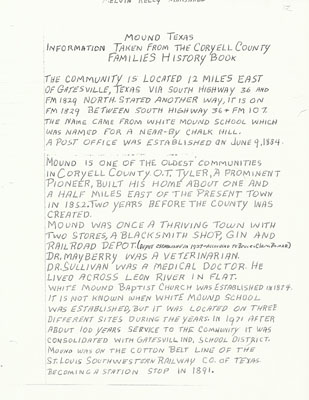 MOUND TEXAS
INFORMATION TAKEN FROM THE CORYELL COUNTY
FAMILIES HISTORY BOOK
THE COMMUNITY IS LOCATED 12 MILES EAST
OF GATESVILLE, TEXAS VIA SOUTH HIGHWAY 36 AND
FM 1829 NORTH. STATED ANOTHER WAY, IT IS ON
FM 1829 BETWEEN SOUTH HIGHWAY 36 + FM 107.
THE NAME CAME FROM WHITE MOUND SCHOOL WHICH
WAS NAMED FOR A NEAR-BY CHALK HILL.
A POST OFFICE WAS ESTABLISHED ON JUNE 9, 1884.
MOUND IS ONE OF THE OLDEST COMMUNITIES
IN CORYELL COUNTY. O.T. TYLER, A PROMINENT
PIONEER, BUILT HIS HOME ABOUT ONE AND
A HALF MILES EAST OF THE PRESENT TOWN
IN 1852. TWO YEARS BEFORE THE COUNTY WAS
CREATED.
MOUND WAS ONCE A THRIVING TOWN WITH
TWO STORES, A BLACKSMITH SHOP, GIN AND
RAILROAD DEPOT.
DR. MAYBERRY WAS A VETERINARIAN.
DR. SULLIVAN WAS A MEDICAL DOCTOR. HE
LIVED ACROSS LEON RIVER IN FLAT.
WHITE MOUND BAPTIST CHURCH WAS ESTABLISHED IN 1874.
IT IS NOT KNOWN WHEN WHITE MOUND SCHOOL
WAS ESTABLISHED, BUT IT WAS LOCATED ON THREE
DIFFERENT SITES DURING THE YEARS. IN 1971 AFTER
ABOUT 100 YEARS SERVICE TO THE COMMUNITY IT WAS
CONSOLIDATED WITH GATESVILLE IND. SCHOOL DISTRICT.
MOUND WAS ON THE COTTON BELT LINE OF THE
ST. LOUIS SOUTHWESTERN RAILWAY CO. OF TEXAS
BECOMING A STATION STOP IN 1891.